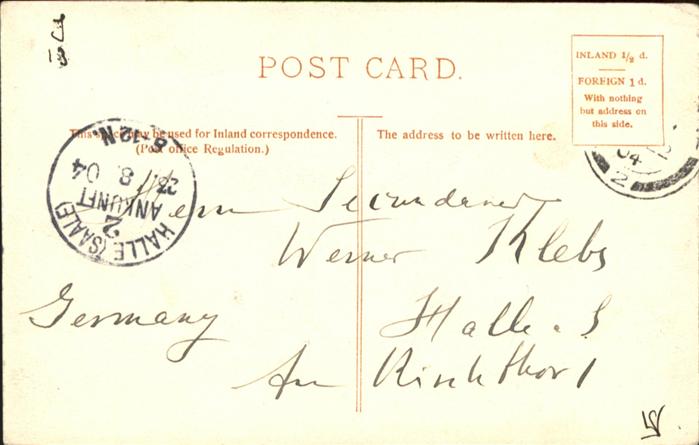 POST CARD.
INLAND ½ d.
FOREIGN 1 d.
With nothing
but address on
this side.
This space may be used for Inland correspondence.
(Post office Regulation.)
The address to be written here.
HALLE (SAALE)
2
ANKUNFT
23. 8. 04
8-12 N.
04
2
Herrn Secundaner
Werner Klebs
Germany
Halle a. S
Am Kirchthor 1